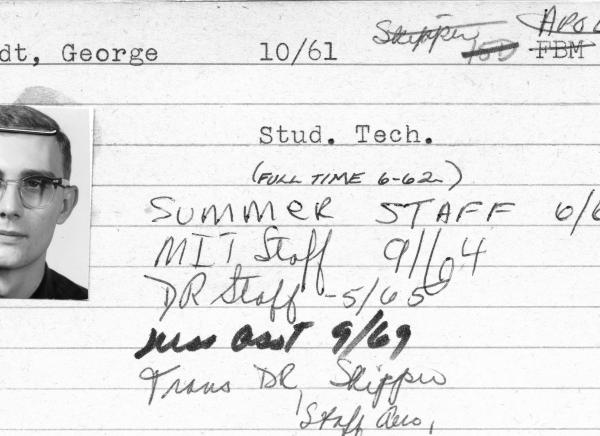 dt, George 10/61 Skipper FBM APOL
Stud. Tech.
(FULL TIME 6-62)
SUMMER STAFF 6/6
MIT Staff 9/64
DR Staff - 5/65
9/69
Trans DR, Skipper
Staff